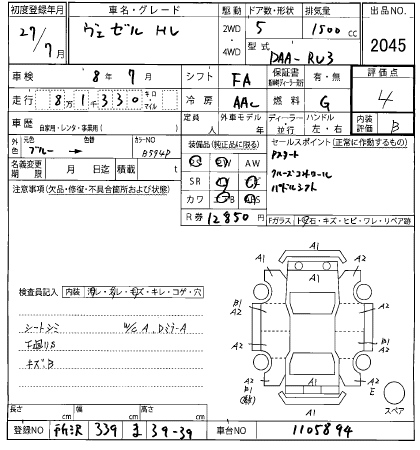 初度登録年月 車名・グレード 駆動 ドア数・形状 排気量 出品NO.
27/7月 ヴェゼル HV 2WD・4WD 5 1500cc 2045
型式 DAA-RU3
車検 8年7月 シフト FA 保証書 有・無 評価点
走行 8万1千330 キロ・マイル 冷房 AAC 燃料 G 4
車歴 自家用・レンタ・事業用( ) 定員 人 外車モデル 年 ディーラー・並行 ハンドル 左・右 内装評価 B
外色 元色 ブルー → 色替 カラーNO B594P
名義変更期限 月 日迄 積載 t
注意事項(欠品・修復・不具合箇所および状態)
装備品(純正品に限る)
AW
SR
カワ
R券 12850円
セールスポイント(正常に作動するもの)
Pスタート
クルーズコントロール
パドルシフト
Fガラス・飛石・キズ・ヒビ・ワレ・リペア跡
検査員記入 内装 汚レ・スレ・キズ・キレ・コゲ・穴
シートシミ W/C A、DミラーA
下廻りS
キズ、B
A1
A1 A1
B1 A2 B1 A2
A2 A2
A2 A2
A1
B1
A2 E
スペア
長さ cm 幅 cm 高さ cm
登録NO 所沢 339 ま 39-39 車台NO 1105894